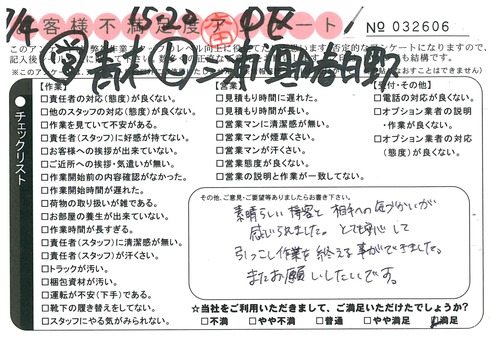 7/4 1522 中区
お客様不満足度アンケート
№ 032606
営 青木 作 三浦
チェックリスト
【作業】
□責任者の対応(態度)が良くない。
□他のスタッフの対応(態度)が良くない。
□作業を見ていて不安がある。
□責任者(スタッフ)に好感が持てない。
□お客様への挨拶が出来ていない。
□ご近所への挨拶・気遣いが無い。
□作業開始前の内容確認がなかった。
□作業開始時間が遅れた。
□荷物の取り扱いが雑である。
□お部屋の養生が出来ていない。
□作業時間が長すぎる。
□責任者(スタッフ)に清潔感が無い。
□責任者(スタッフ)が汗くさい。
□トラックが汚い。
□梱包資材が汚い。
□運転が不安(下手)である。
□靴下の履き替えをしてない。
□スタッフにやる気がみられない。
【営業】
□見積もり時間に遅れた。
□見積もり時間が長い。
□営業マンに清潔感が無い。
□営業マンが煙草くさい。
□営業マンが汗くさい。
□営業態度が良くない。
□営業の説明と作業が一致してない。
【受付・その他】
□電話の対応が良くない。
□オプション業者の説明
・作業が良くない。
□オプション業者の対応
(態度)が良くない。
その他、ご意見・ご要望等ありましたらお書き下さい。
素晴らしい接客と相手への気づかいが
感じられました。とても安心して
引っこし作業を終える事ができました。
またお願いしたいです。
☆当社をご利用いただきまして、ご満足いただけたでしょうか?
□不満 □やや不満 □普通 □やや満足 □満足